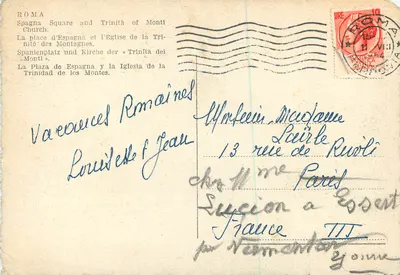 ROMA
Spagna Square and Trinità of Monti
Church.
La place d'Espagne et l'Eglise de la Tri-
nité des Montagnes.
Spanienplatz und Kirche der « Trinità dei
Monti ».
La Plaza de España y la Iglesia de la
Trinidad de los Montes.
ROMA
Vacances Romaines
Louisette & Jean
Monsieur Madame
13 rue de Rivoli
Paris
chez Mme
Lucion a Essert
France III
par
Yonne